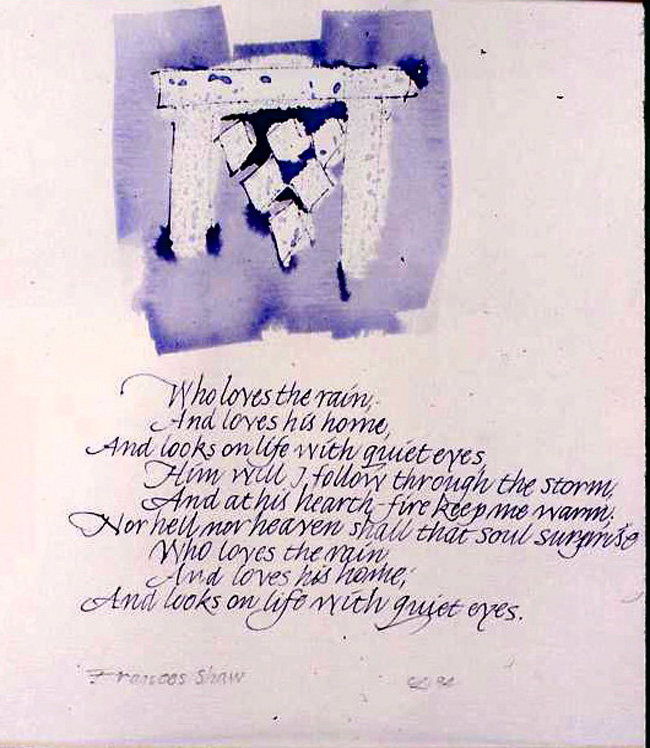 Who loves the rain,
And loves his home,
And looks on life with quiet eyes,
Him will I follow through the storm,
And at his hearth-fire keep me warm;
Nor hell nor heaven shall that soul surprise
Who loves the rain,
And loves his home;
And looks on life with quiet eyes.
Frances Shaw